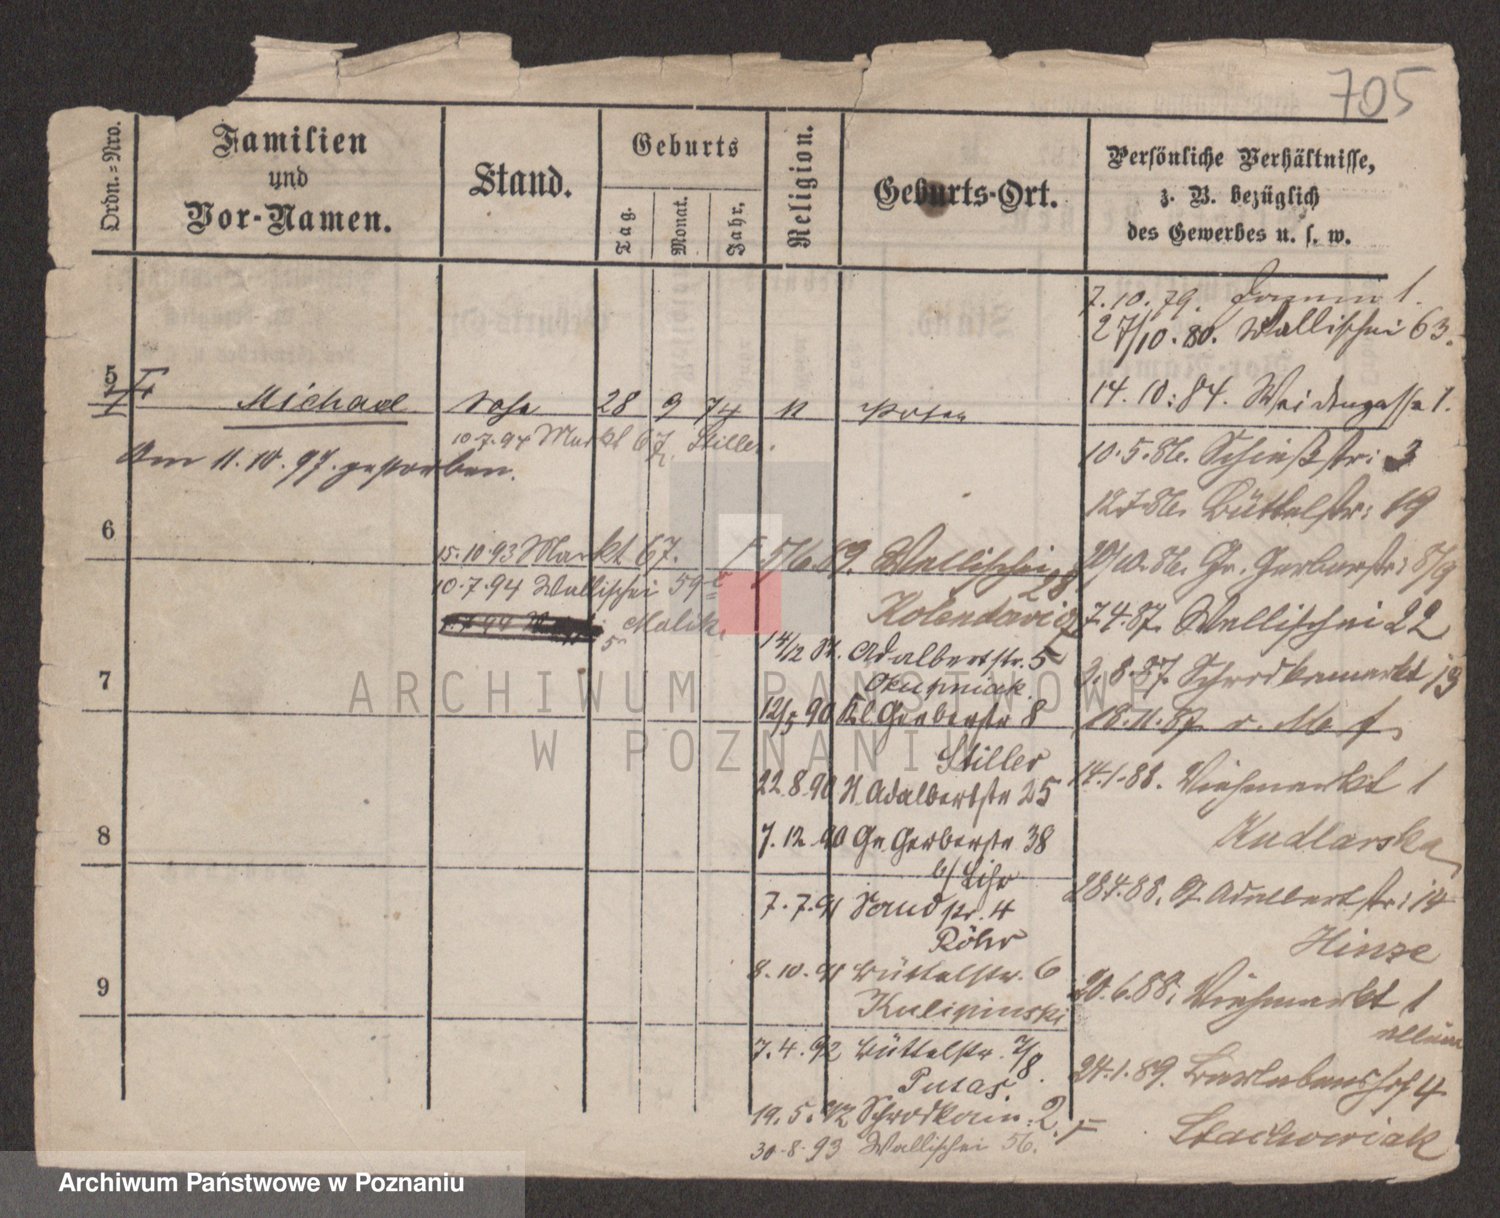 705
Ordn.-Nro.
Familien
und
Vor-Namen.
Stand.
Geburts
Tag.
Monat.
Jahr.
Religion.
Geburts-Ort.
Persönliche Verhältnisse,
z. B. bezüglich
des Gewerbes u. s. w.
7.10.79. 1.
27/10.80. Wallischei 63.
5
Michael Sohn 28 9 74 Posen
14.10.84. Weidengasse 1.
10.7.94 Markt 67, Stiller.
Am 11.10.97. gestorben.
10.5.86. Schießstr: 3
12.7.86. Büttelstr: 19
6
15.10.93 Markt 67.
5/6.89. Wallischei 28
Kolendowicz
20/10.86. Gr. Gerberstr: 8/9
10.7.94 Wallischei 59
Malik
7.4.87. Wallischei 22
14/12 Adalbertstr. 5
Okupniak
3.8.87. Schrodkamarkt 13
7
12/5 90 Kl. Gerberstr 8
Stiller
18.11.87. v. M.
22.8.90 St. Adalbertstr 25
14.1.88. Viehmarkt 1
Kudlarska
7.12.90 Gr. Gerberstr 38
b/ Lihr
8
28.4.88. St. Adalbertstr: 14
Hinze
7.7.91 Sandstr. 4
Röhr
8.10.91 Büttelstr. 6
Kulipinski
20.6.88. Viehmarkt 1
9
7.4.92 Büttelstr. 7/8.
Putas.
24.1.89. Berlebenshof 4
Stachowiak
19.5.92 Schrodka 2.
30.8.93 Wallischei 56.
ARCHIWUM PAŃSTWOWE
W POZNANIU
Archiwum Państwowe w Poznaniu